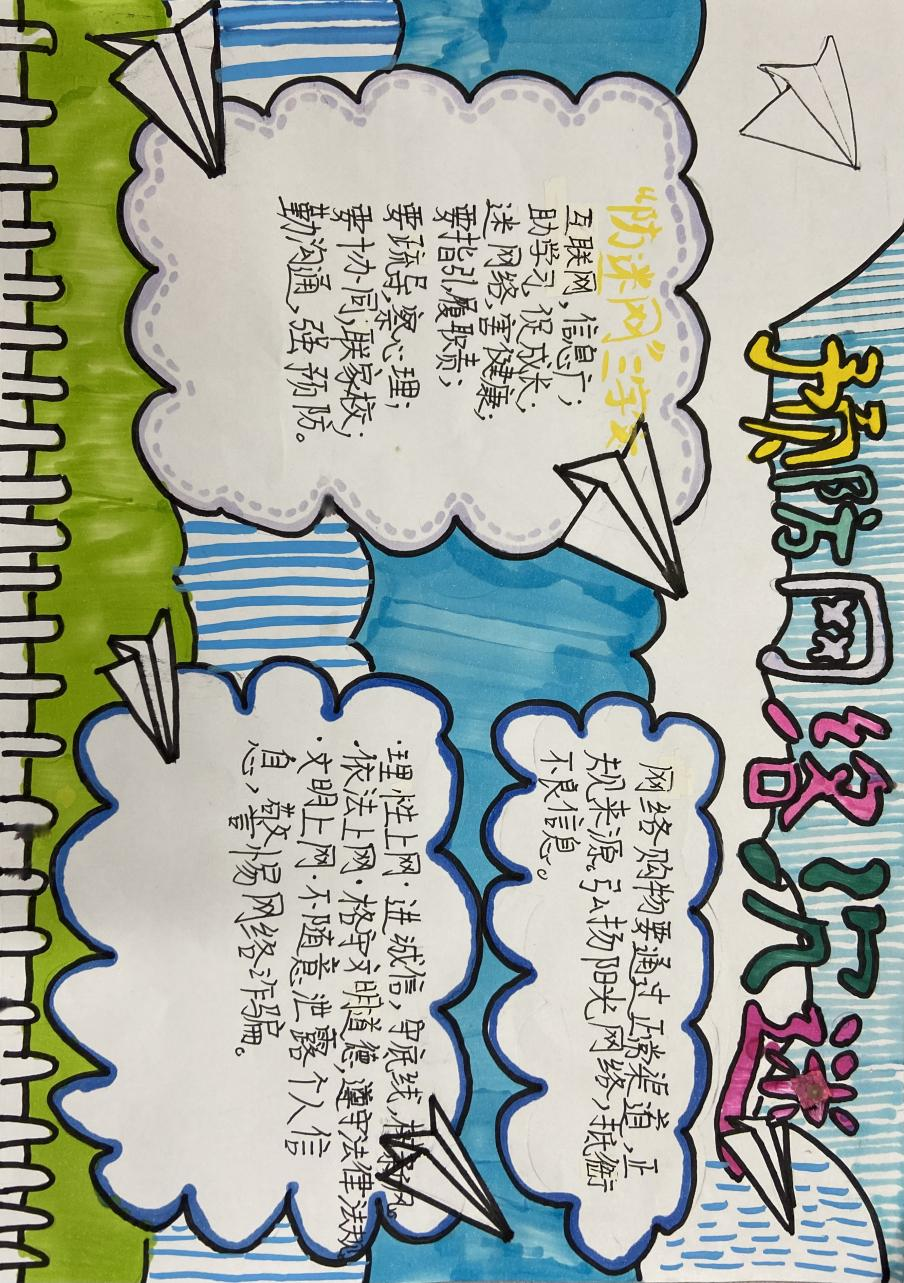 预防网络沉迷
"防迷网"三字文
互联网，信息广；
助学习，促成长；
迷网络，害健康；
要指引，履职责；
要疏导，察心理；
要协同，联家校；
勤沟通，强预防。
网络购物要通过正常渠道，正
规来源。弘扬阳光网络，抵御
不良信息。
·理性上网·进诚信，守底线，
·依法上网·格守文明道德，遵守法律法规
·文明上网·不随意泄露个人信
息，警惕网络诈骗。